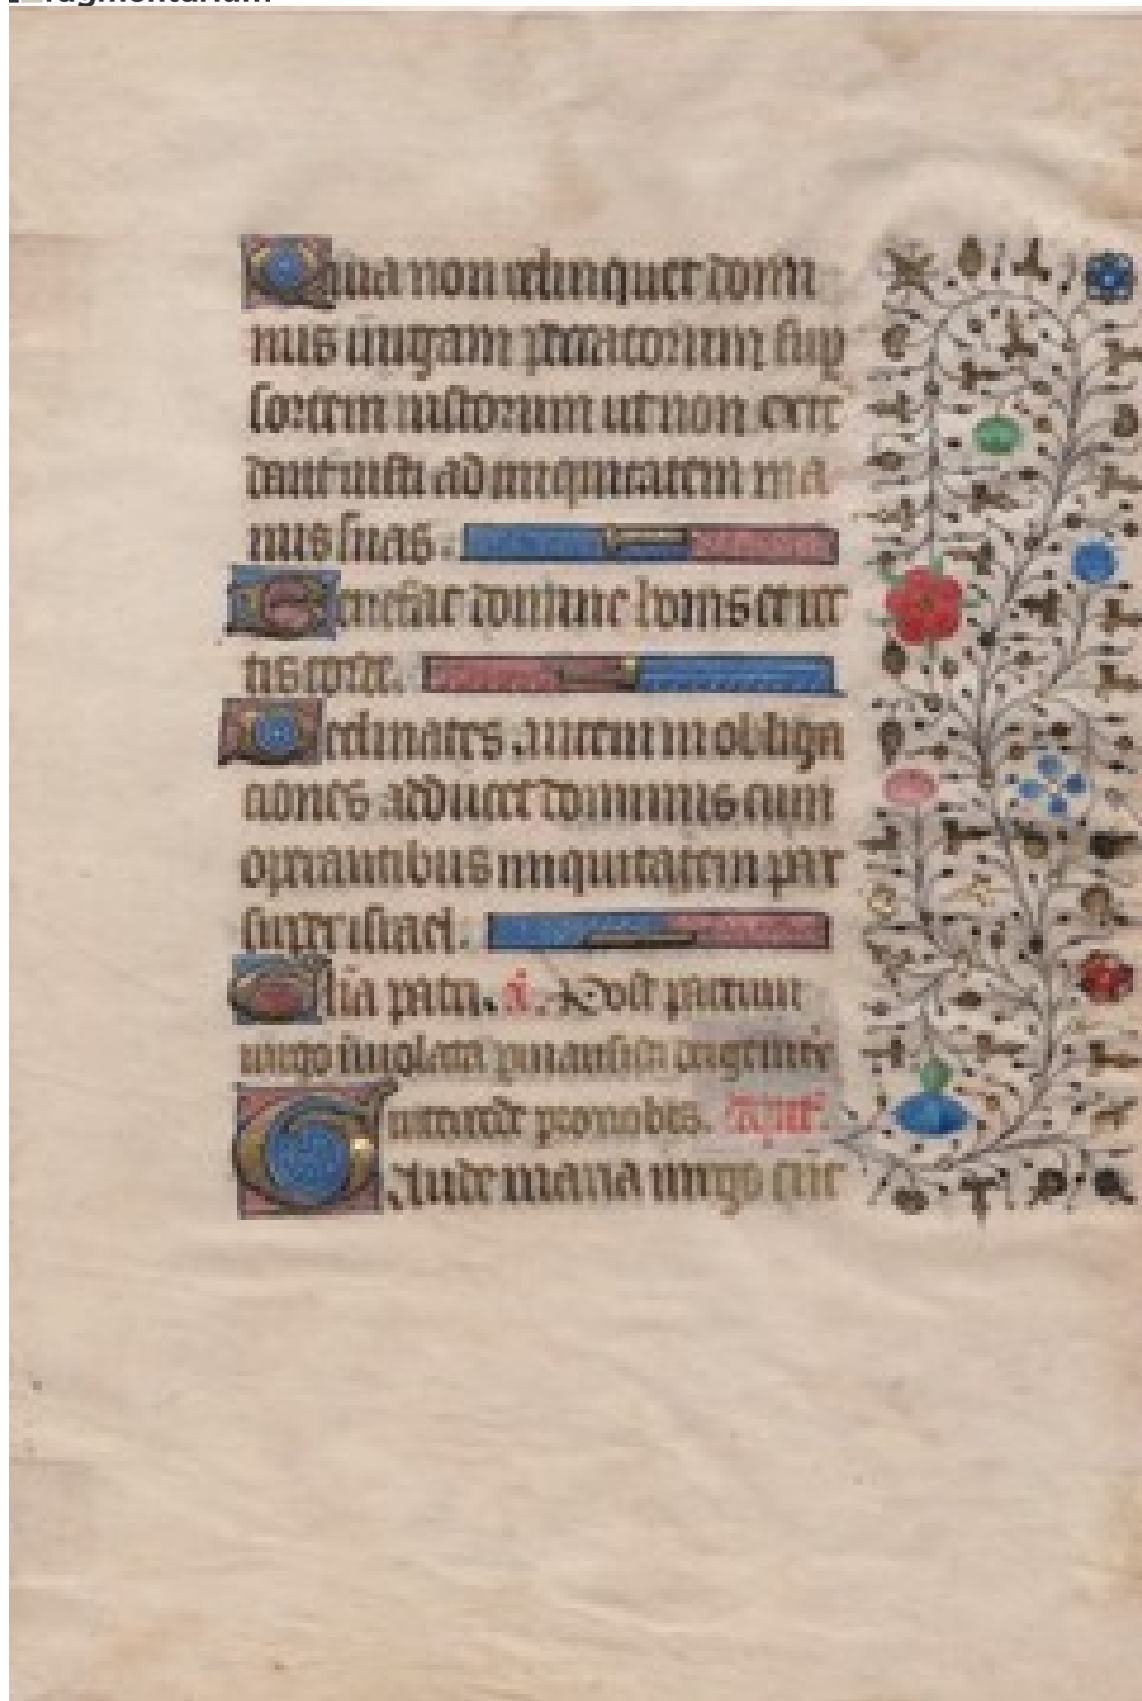 Quia non relinquet domi
nus virgam peccatorum sup
sortem iustorum ut non exte
dant iusti ad iniquitatem ma
nus suas.
Benefac domine bonis et rec
tis corde.
Declinantes autem in obliga
ciones adducet dominus cum
operantibus iniquitatem pax
super israel.
Glia patri. a. Post partum
virgo inviolata pmansisti dei genitrix
intercede pro nobis.
Gaude maria virgo